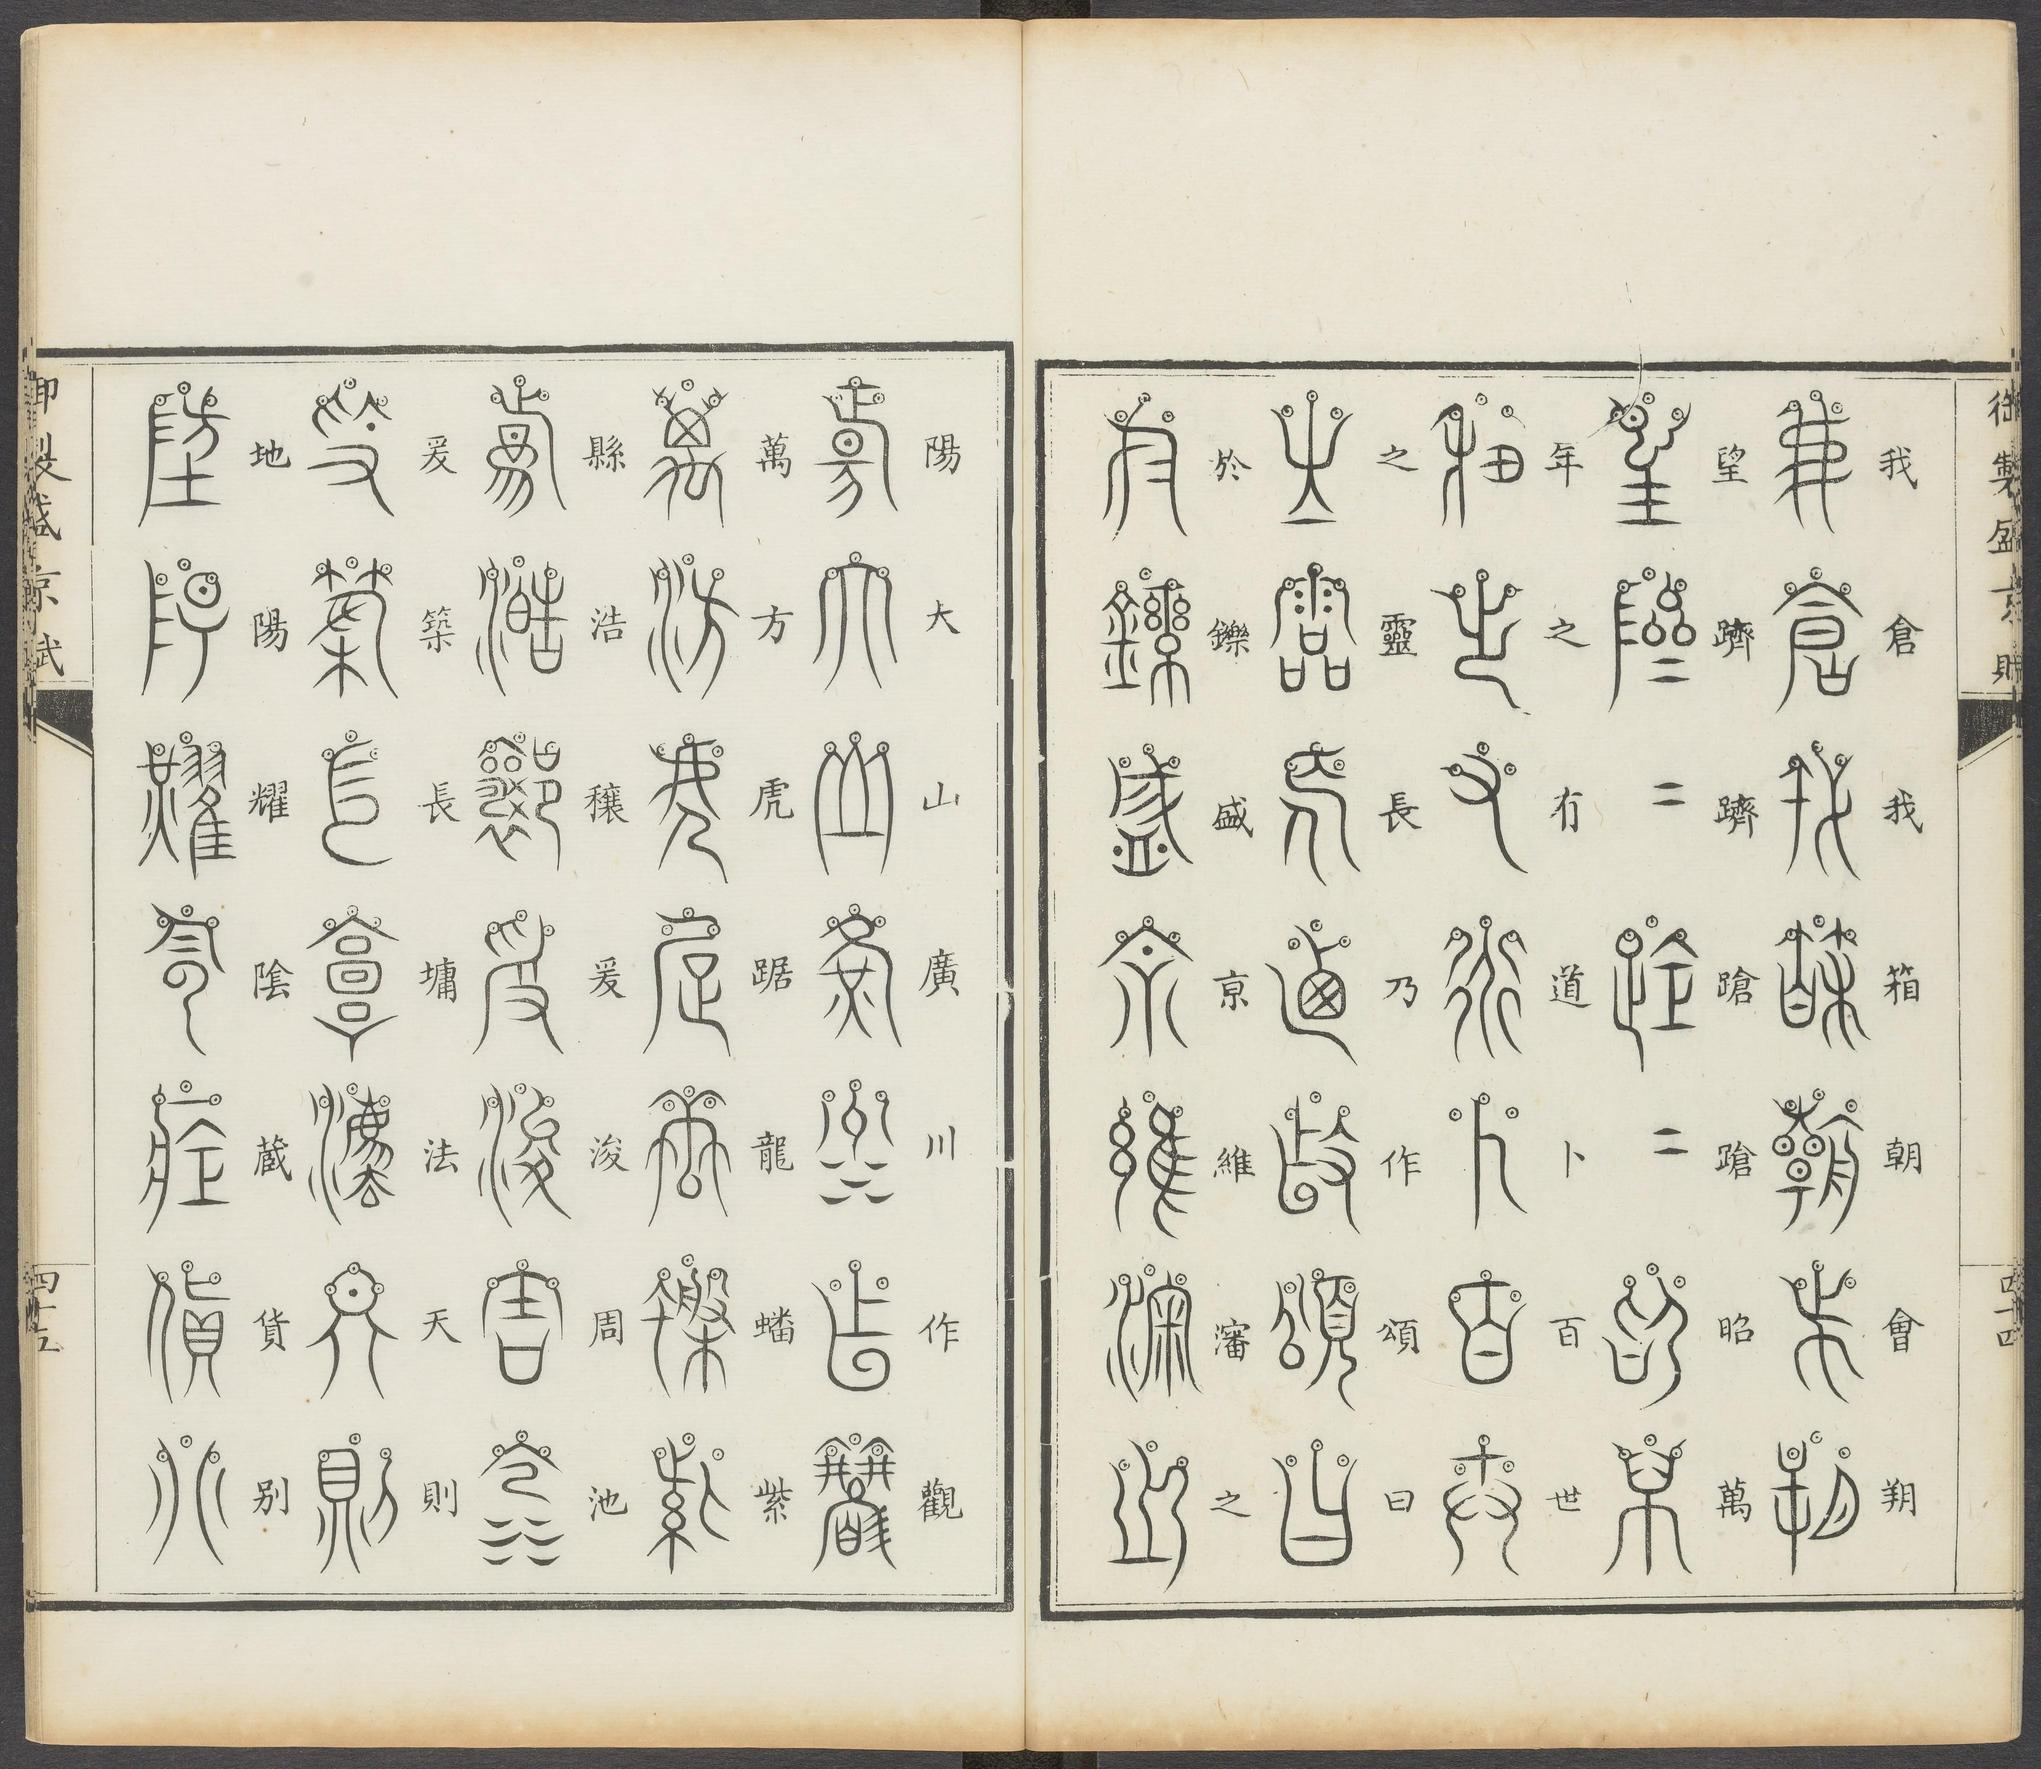 御製盛京賦
四十四
我倉我箱朝會朔
望躋躋蹌蹌昭萬
年之有道卜百世
之靈長乃作頌曰
於鑠盛京維瀋之
陽大山廣川作觀
萬方虎踞龍蟠紫
縣浩穰爰浚周池
爰築長墉法天則
地陽耀陰藏貨別
御製盛京賦
四十五